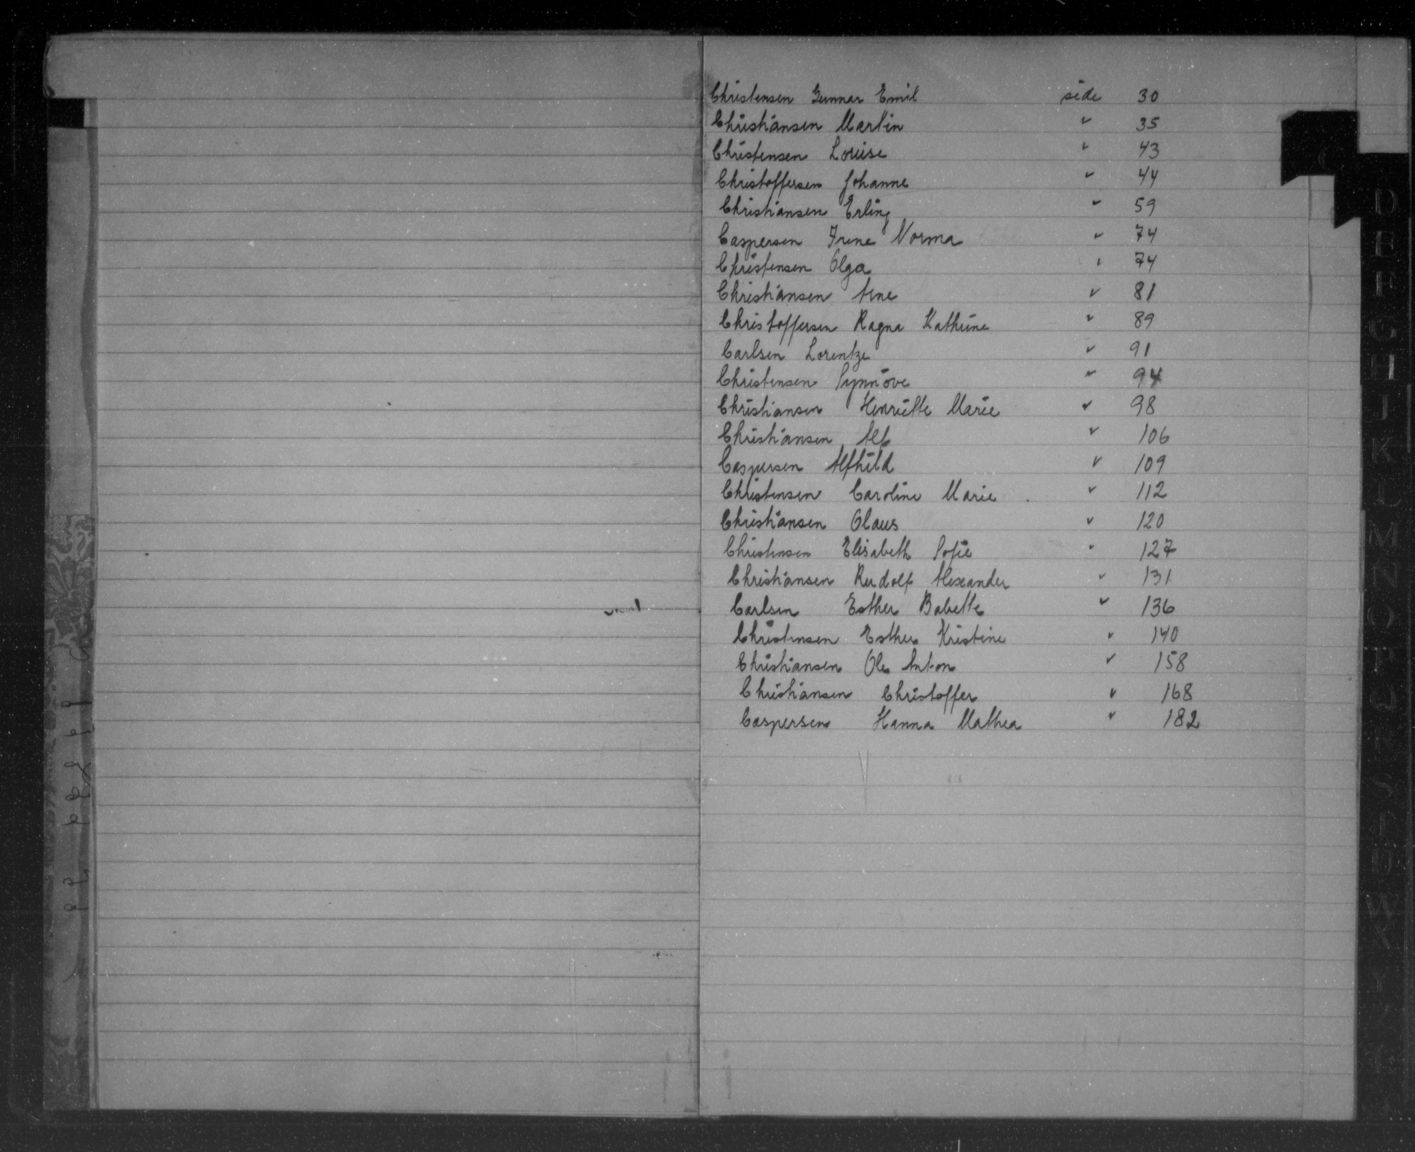 Christensen Gunnar Emil side 30
Christiansen Martin " 35
Christensen Louise " 43
Christoffersen Johanne " 44
Christiansen Erling " 59
Caspersen Irene Norma " 74
Christensen Olga " 74
Christiansen Arne " 81
Christoffersen Ragna Kathrine " 89
Carlsen Lorentze " 91
Christensen Synnöve " 94
Christiansen Henriette Marie " 98
Christiansen Alf " 106
Caspersen Alfhild " 109
Christensen Caroline Marie " 112
Christiansen Olaus " 120
Christensen Elisabeth Sofie " 127
Christiansen Rudolf Alexander " 131
Carlsen Esther Babette " 136
Christensen Esther Kristine " 140
Christiansen Ole Anton " 158
Christiansen Christoffer " 168
Caspersen Hanna Mathea " 182
C
D
E
F
G
H
I
J
K
L
M
N
O
P
Q
R
S
T
U
W
X
Y